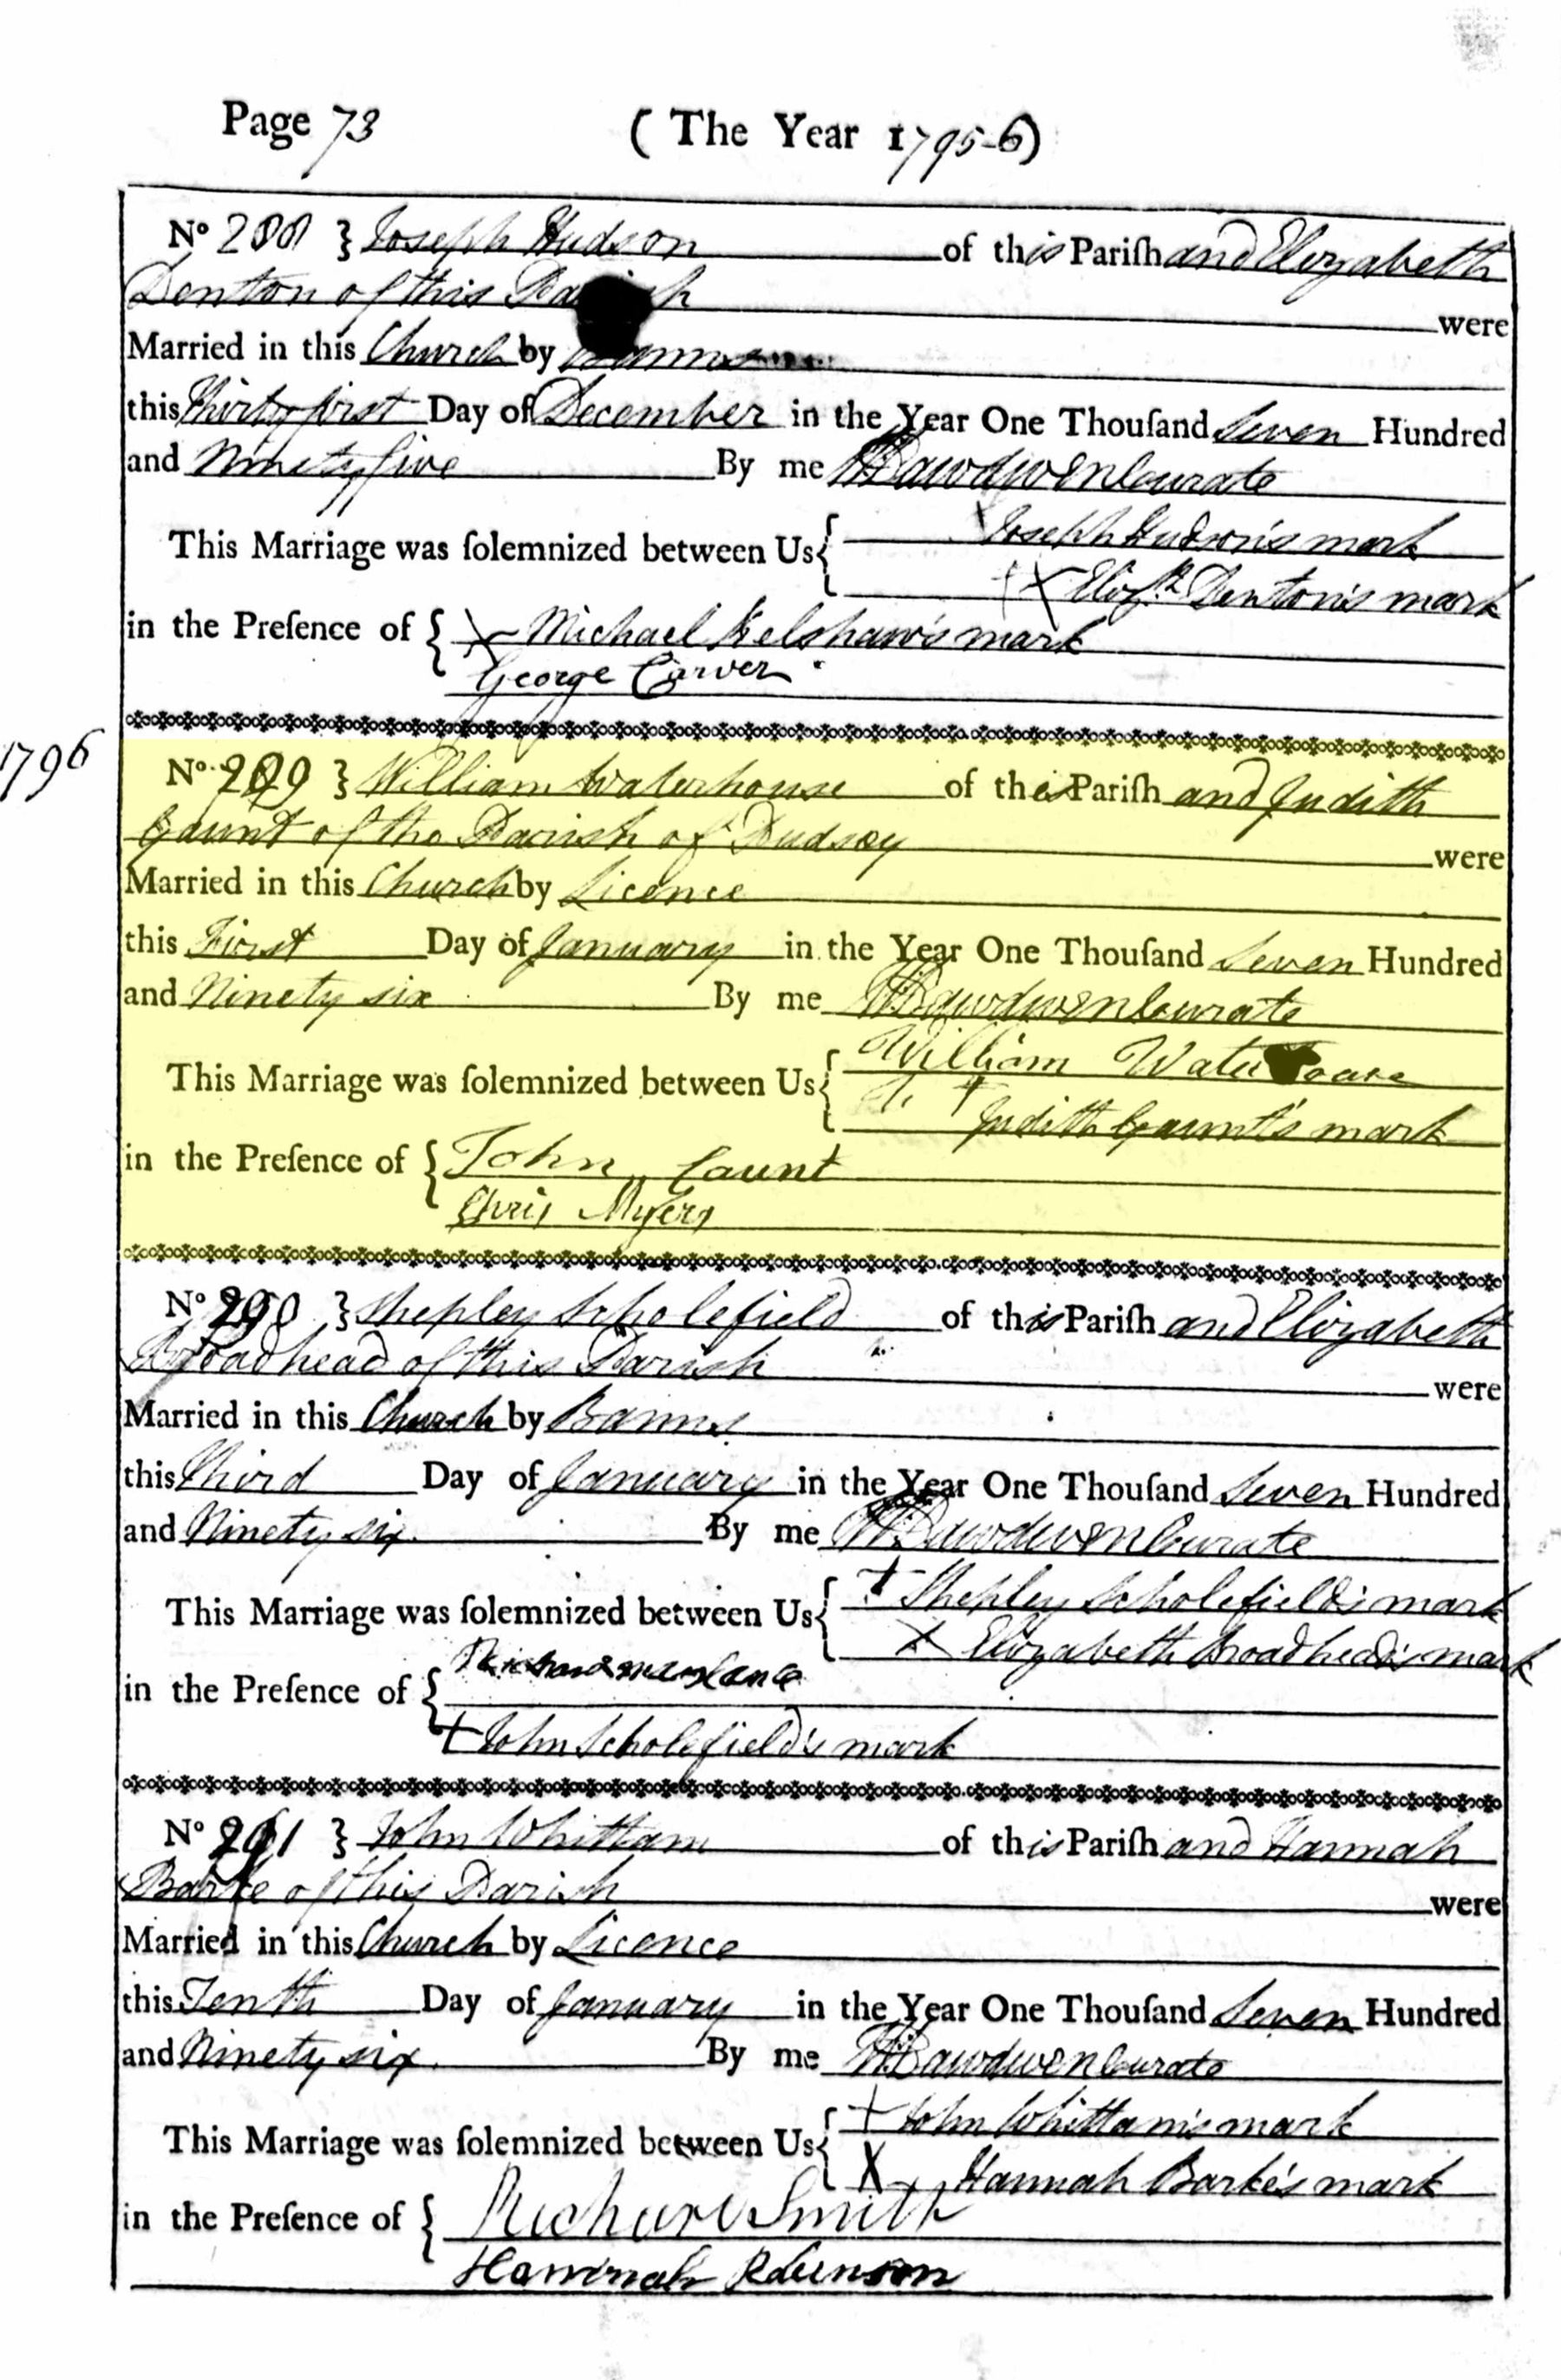 Page 73 ( The Year 1795-6)
No } Joseph Hudson of this Pariſh and Elizabeth
Denton of this Parish
were
Married in this Church by Banns
this Thirty first Day of December in the Year One Thouſand Seven Hundred
and Ninety five By me Bawdwen Curate
This Marriage was ſolemnized between Us { Joseph Hudson's mark
X Eliz.th Denton's mark
in the Preſence of { X Michael Kelshaw's mark
George Carver
1796
No } William Waterhouse of this Pariſh and Judith
Gaunt of the Parish of Pudsey
were
Married in this Church by Licence
this First Day of January in the Year One Thouſand Seven Hundred
and Ninety six By me Bawdwen Curate
This Marriage was ſolemnized between Us { William
Judith Gaunt's mark
in the Preſence of { John Gaunt
Chris Myers
No } Shepley Scholefield of this Pariſh and Elizabeth
Broadhead of this Parish
were
Married in this Church by Banns
this Third Day of January in the Year One Thouſand Seven Hundred
and Ninety six. By me Bawdwen Curate
This Marriage was ſolemnized between Us { + Shepley Scholefield's mark
X Elizabeth Broadhead's mark
in the Preſence of {
+ John Scholefield's mark
No } John Whittam of this Pariſh and Hannah
Barke of this Parish
were
Married in this Church by Licence
this Tenth Day of January in the Year One Thouſand Seven Hundred
and Ninety six. By me Bawdwen Curate
This Marriage was ſolemnized between Us { + John Whittam's mark
X Hannah Barke's mark
in the Preſence of { Richard Smith
Hannah Robinson